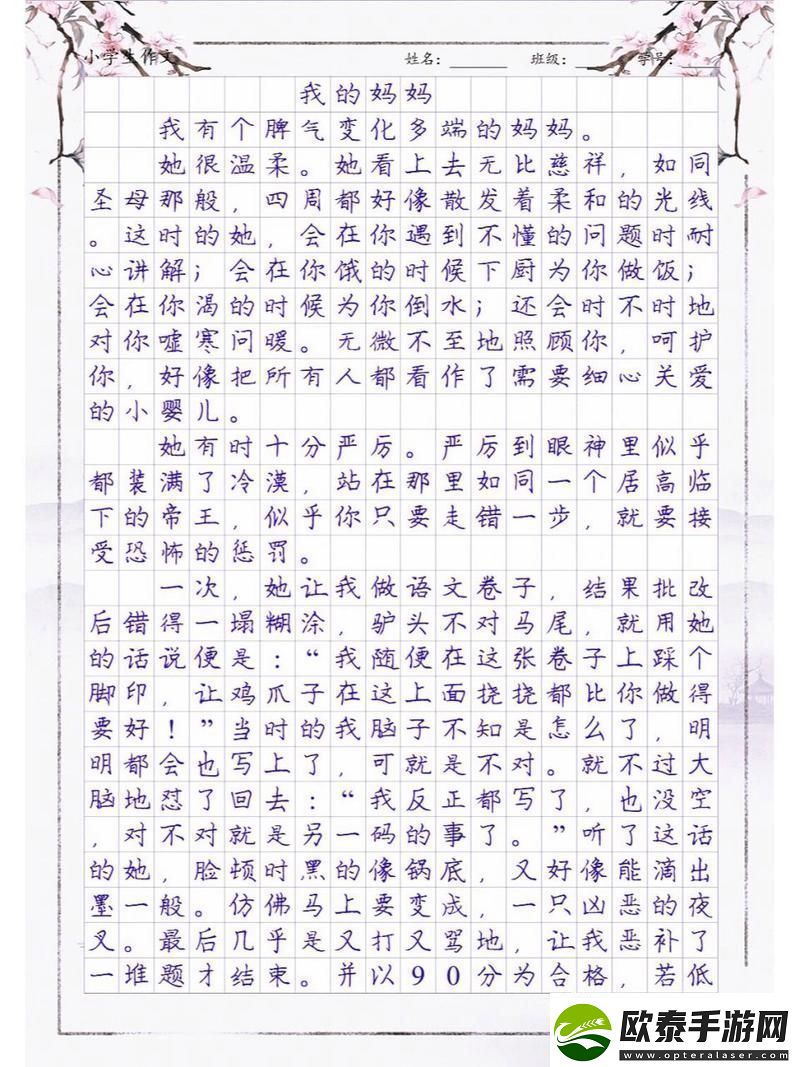 小学生作文 姓名：______ 班级：__ 学号：__
我的妈妈
我有个脾气变化多端的妈妈。
她很温柔。她看上去无比慈祥，如同
圣母那般，四周都好像散发着柔和的光线
。这时的她，会在你遇到不懂的问题时耐
心讲解；会在你饿的时候下厨为你做饭；
会在你渴的时候为你倒水；还会时不时地
对你嘘寒问暖。无微不至地照顾你，呵护
你，好像把所有人都看作了需要细心关爱
的小婴儿。
她有时十分严厉。严厉到眼神里似乎
都装满了冷漠，站在那里如同一个居高临
下的帝王，似乎你只要走错一步，就要接
受恐怖的惩罚。
一次，她让我做语文卷子，结果批改
后错得一塌糊涂，驴头不对马尾，就用她
的话说便是：“我随便在这张卷子上踩个
脚印，让鸡爪子在这上面挠挠都比你做得
要好！”当时的我脑子不知是怎么了，明
明都会也写上了，可就是不对。就不过大
脑地怼了回去：“我反正都写了，也没空
，对不对就是另一码的事了。”听了这话
的她，脸顿时黑的像锅底，又好像能滴出
墨一般。仿佛马上要变成，一只凶恶的夜
叉。最后几乎是又打又骂地，让我恶补了
一堆题才结束。并以90分为合格，若低
欧泰手游网
www.opteralaser.com